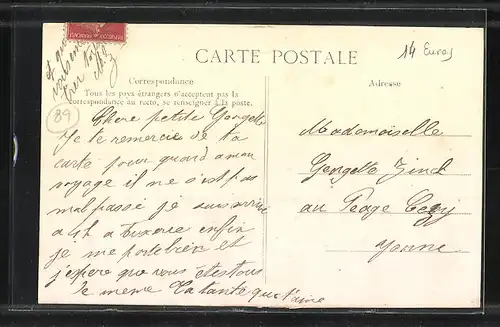 CARTE POSTALE
14 Euros
Correspondance
Tous les pays étrangers n'acceptent pas la
correspondance au recto, se renseigner à la poste.
Adresse
89
Chere petite Georgette
Je te remercie de ta
carte pour quand a mon
voyage il ne s'est pas
mal passé je suis arrivé
a Auxerre enfin
je me porte bien et
j'espere que vous etes tous
de meme Ta tante qui t'aime
et que
Mademoiselle
Georgette Zinck
au Péage Cezy
Yonne